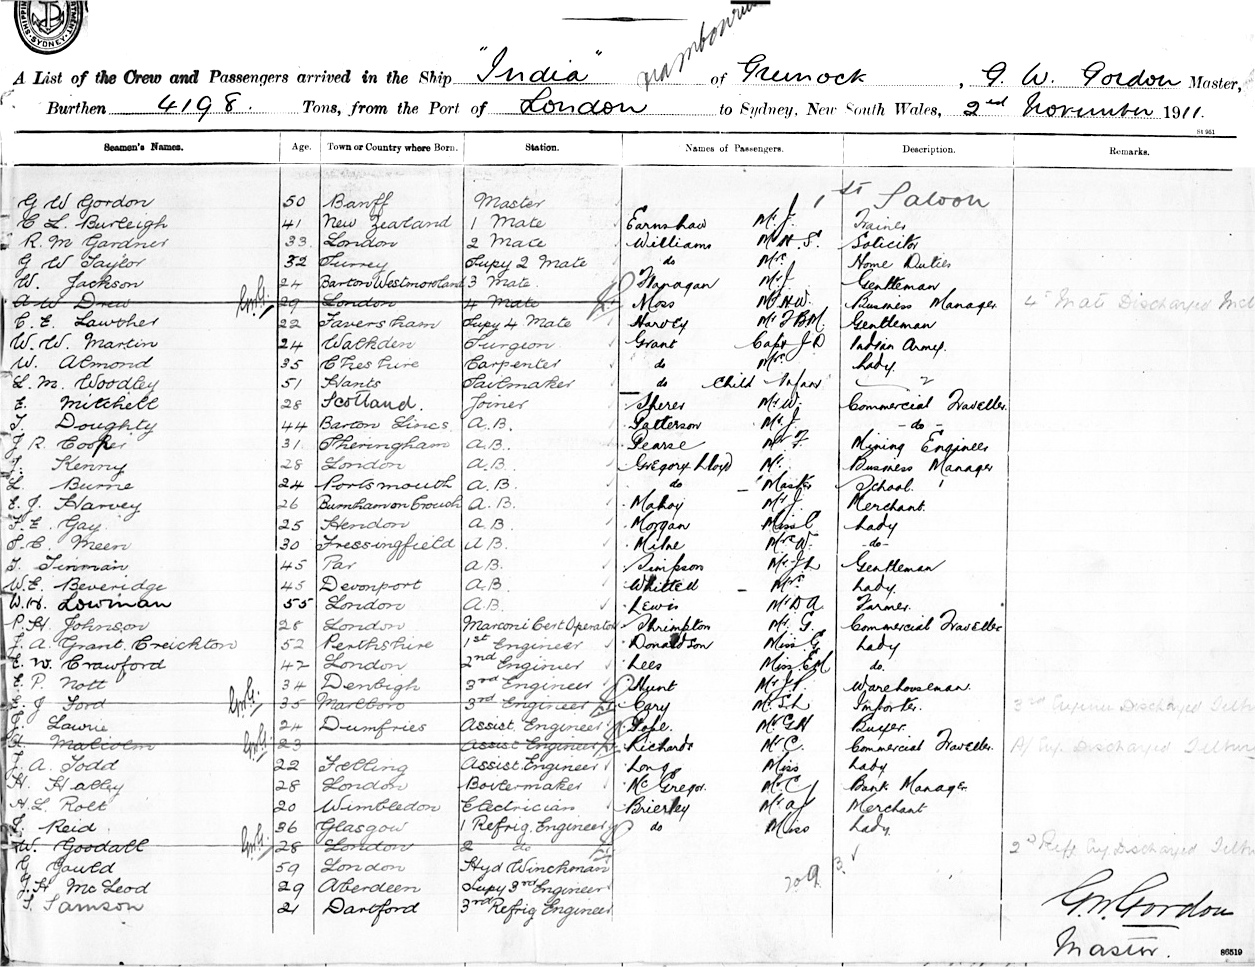 "India"
A List of the Crew and Passengers arrived in the Ship "India" of Greenock, G. W. Gordon Master,
Burthen 4198. Tons, from the Port of London to Sydney, New South Wales, 2nd November 1911.
86951
Seamen's Names. Age. Town or Country where Born. Station. Names of Passengers. Description. Remarks.
1 st Saloon
G W Gordon 50 Banff Master
C L Burleigh 41 New Zealand 1 Mate Earnshaw Mr J.
R. M Gardner 33. London 2 Mate Williams Mr H. S. Solicitor
G W Taylor 32 Surrey Supy 2 Mate do Mrs Home Duties
W. Jackson 24 Barton Westmoreland 3 Mate. Flanagan Mr J. Gentleman
A W Drew 29 London 4 Mate Moss Mr H.W. Business Manager 4th Mate Discharged
C. E. Lawther 22 Faversham Supy 4 Mate Harvey Mr F B M. Gentleman
W. W. Martin 24 Walkden Surgeon Grant Capt J D Indian Army.
W. Almond 35 Cheshire Carpenter do Mrs Lady.
L. M. Woodley 51 Hants Sailmaker do Child Infant
E. Mitchell 28 Scotland. Joiner Mr W. Commercial Traveller.
T. Doughty 44 Barton Lincs A.B. Patterson Mr J. - do -
J R. Cooper 31. Sheringham A.B. Pearse Mr F Mining Engineer
J. Kenny 28 London A.B. Gregory Lloyd Mr. Business Manager
L Burne 24 Portsmouth A.B. do - Master School.
E. J. Harvey 26 Burnham on Crouch A.B. Mahoy Mr J. Merchant.
F. E. Gay 25 Hendon A.B. Morgan Miss C Lady
S. C. Meen 30 Fressingfield A.B. Milne Mrs W. -do-
T. Tinman 45 Par A.B. Simpson Mr J L Gentleman
W. E. Beveridge 45 Devonport A.B. Whittell - Mrs Lady.
W. H. Lowman 55 London A.B. Lewis Mr D A. Farmer.
P. H. Johnson 28 London Marconi Cert Operator Shrimpton Mr G. Commercial Traveller
J. A. Grant Creickton 52 Perthshire 1st Engineer Donaldson Miss G Lady
E. W. Crawford 42 London 2nd Engineer Lees Miss E M do.
E P. Nott 34 Denbigh 3rd Engineer Hunt Mr J P. Warehouseman.
E. J Ford 35 Marlboro 3rd Engineer Cary Mr S L Importer. 3rd Engineer Discharged
J. Lawrie 24 Dumfries Assist. Engineer Pope. Mr G H Buyer.
H. Malcolm 23 Assist Engineer Richards Mr C. Commercial Traveller. Discharged
J. A. Todd 22 Felling Assist. Engineer Long Miss Lady
H. Hatley 28 London Boilermaker McGregor Mr C J Bank Manager
H. L Rolt 20 Wimbledon Electrician Brierley Mr A J Merchant
J. Reid. 36 Glasgow 1 Refrig. Engineer do Miss Lady.
W. Goodall 28 London 2 do 2d Discharged
G Gauld 59 London Hyd Winchman
J. H McLeod 29 Aberdeen Supy 3rd Engineer
S. Samson 21 Dartford 3rd Refrig Engineer
G. W. Gordon
Master.
86519